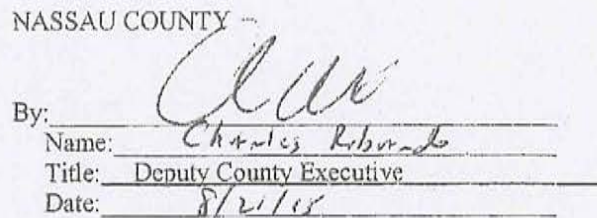 NASSAU COUNTY
By:
Name: Charles Ribando
Title: Deputy County Executive
Date: 8/21/15